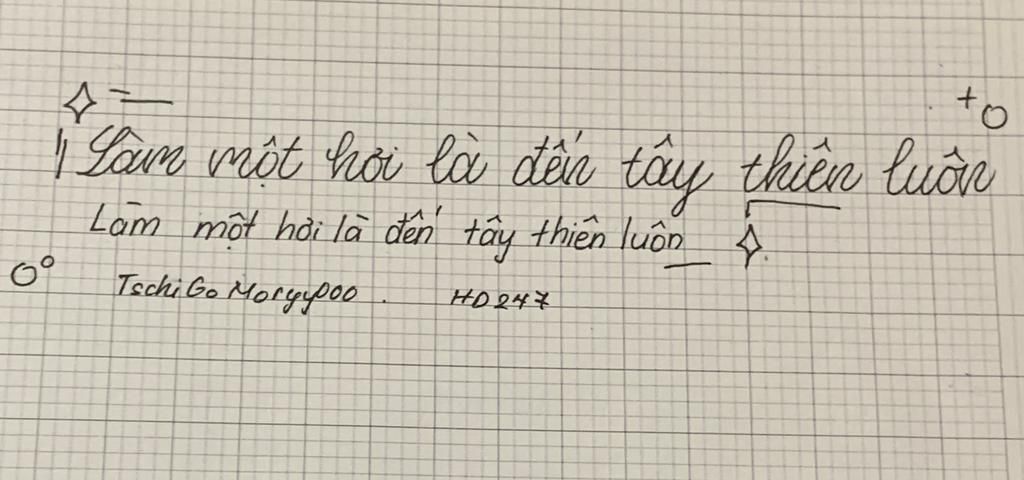 Làm một hơi là đến tây thiên luôn
Làm một hơi là đến tây thiên luôn
TschiGoMorgyooo. HD247